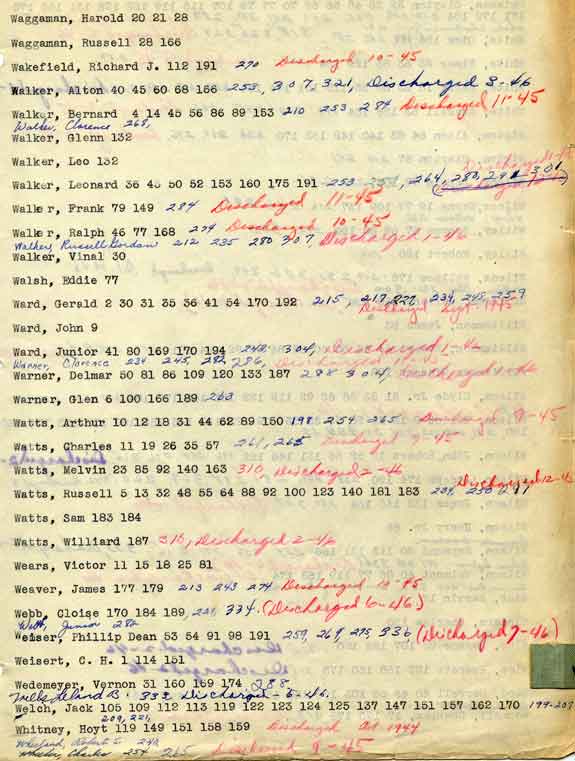 Waggaman, Harold 20 21 28
Waggaman, Russell 28 166
Wakefield, Richard J. 112 191 270 Discharged 10-45
Walker, Alton 40 45 60 68 166 253, 307, 321, Discharged 3-46
Walker, Bernard 4 14 45 56 86 89 153 210 253 284 Discharged 11-45
Walker, Clarence 268,
Walker, Glenn 132
Walker, Leo 132
Walker, Leonard 36 45 50 52 153 160 175 191 253 264, 280, 301
Walker, Frank 79 149 284 Discharged 11-45
Walker, Ralph 46 77 168 274 Discharged 10-45
Walker, Russell Gordon 212 235 280 307, Discharged 1-46
Walker, Vinal 30
Walsh, Eddie 77
Ward, Gerald 2 30 31 35 36 41 54 170 192 215, 217, 227, 234, 248, 259
Discharged Sept. 1945
Ward, John 9
Ward, Junior 41 80 169 170 194 242, 304, Discharged 1-46
Warner, Clarence 234 245, 282, 286,
Warner, Delmar 50 81 86 109 120 133 187 288 304, Discharged 1-46
Warner, Glen 6 100 166 189 263
Watts, Arthur 10 12 18 31 44 62 89 150 198 254 265 Discharged 9-45
Watts, Charles 11 19 26 35 57 261, 265 Discharged 9-45
Watts, Melvin 23 85 92 140 163 310, Discharged 2-46
Discharged 12-45
Watts, Russell 5 13 32 48 55 64 88 92 100 123 140 181 183 234, 250
Watts, Sam 183 184
Watts, Williard 187 315, Discharged 2-46
Wears, Victor 11 15 18 25 81
Weaver, James 177 179 213 243 274 Discharged 10-45
Webb, Cloise 170 184 189, 221, 334. (Discharged 6-46.)
Webb, Junior 282
Weiser, Phillip Dean 53 54 91 98 191 259, 269, 275, 336, (Discharged 7-46)
Weisert, C. H. 1 114 151
Wedemeyer, Vernon 31 160 169 174 288
Wells, Leland B. 333 Discharged - 6-46.
Welch, Jack 105 109 112 113 119 122 123 124 125 137 147 151 157 162 170 199-207
209, 221,
Whitney, Hoyt 119 149 151 158 159 Discharged Oct 1944
Robert E. 242
Wheeler, Charles 254 265 Discharged 9-45